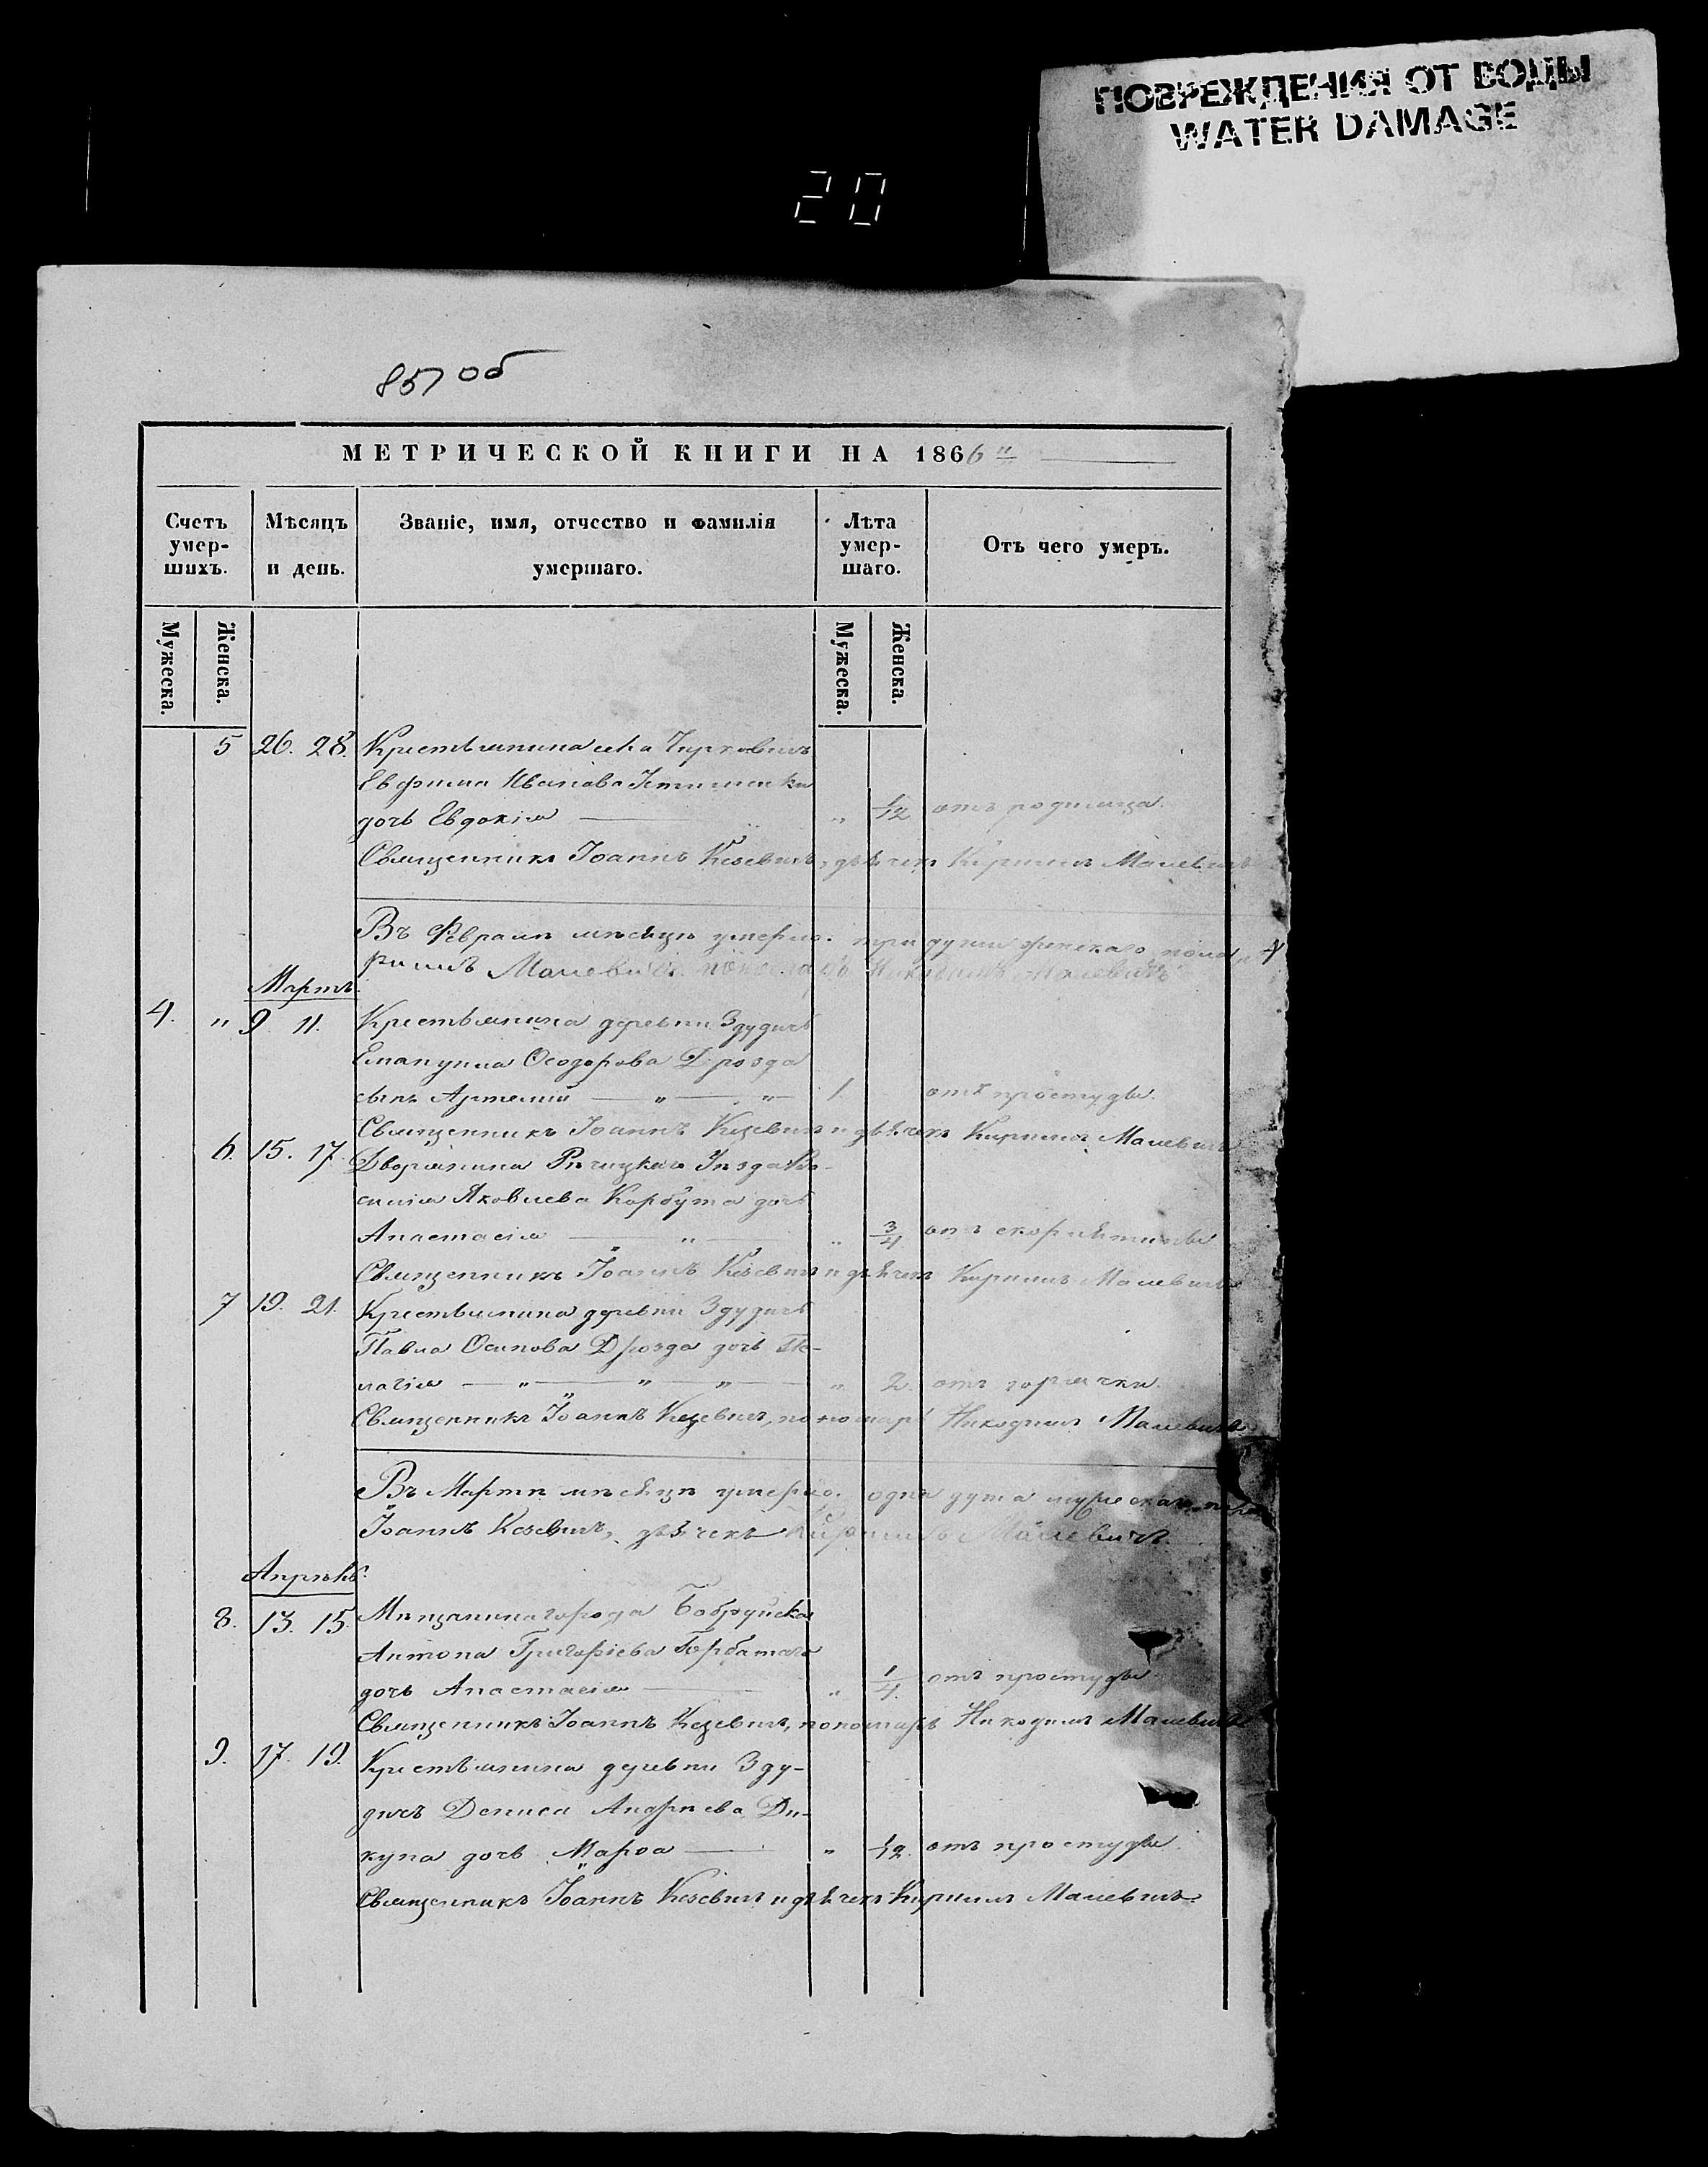 ПОВРЕЖДЕНИЯ ОТ ВОДЫ
WATER DAMAGE
20
857 об
МЕТРИЧЕСКОЙ КНИГИ НА 1866
Счетъ умер-шихъ.
Мѣсяцъ и день.
Званіе, имя, отчество и фамилія умершаго.
Лѣта умер-шаго.
Отъ чего умеръ.
Мужеска.
Женска.
Мужеска.
Женска.
5 26. 28. Крестьянина села Чирковичъ
Евфима Иванова
дочь Евдокія " 1/12 отъ родимца.
Священникъ Іоаннъ Кезевичъ, дьячекъ Кириллъ Малевичъ
Въ Февралѣ мѣсяцѣ умерло. три души женскаго пола
риллъ Малевичъ. пономарь Никодимъ Малевичъ
Мартъ.
4. " 9. 11. Крестьянина деревни Здудичъ
Емануила Ѳеодорова Дрозда
сынъ Артемій " " 1. отъ простуды.
Священникъ Іоаннъ Кезевичъ и дьячекъ Кириллъ Малевичъ
6. 15. 17. Дворянина Рѣчицкаго Уѣзда Ва-
силія Яковлева Корбута дочь
Анастасія " " 3/4 отъ скорлятины
Священникъ Іоаннъ Кезевичъ и дьячекъ Кириллъ Малевичъ
7 19. 21. Крестьянина деревни Здудичъ
Павла Осипова Дрозда дочь Пе-
лагія " " " " 2. отъ горячки.
Священникъ Іоаннъ Кезевичъ, пономарь Никодимъ Малевичъ
Въ Мартѣ мѣсяцѣ умерло. одна душа мужескаго
Іоаннъ Кезевичъ, дьячекъ Кириллъ Малевичъ.
Апрѣль.
8. 13. 15. Мѣщанина города Бобруйска
Антона Григорьева Горбатаго
дочь Анастасія " 1/4. отъ простуды
Священникъ Іоаннъ Кезевичъ, пономарь Никодимъ Малевичъ
9. 17. 19. Крестьянина деревни Зду-
дичъ Дениса Андреева Ди-
куна дочь Марѳа " 1/12. отъ простуды.
Священникъ Іоаннъ Кезевичъ и дьячекъ Кириллъ Малевичъ.